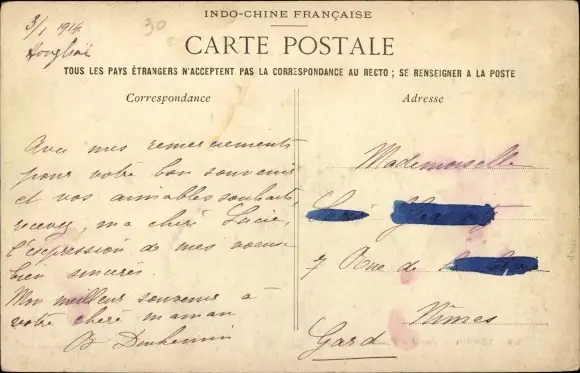 3/1 1914
Honghaï
30
INDO-CHINE FRANÇAISE
CARTE POSTALE
TOUS LES PAYS ÉTRANGERS N'ACCEPTENT PAS LA CORRESPONDANCE AU RECTO ; SE RENSEIGNER A LA POSTE
Correspondance
Avec mes remerciements
pour votre bon souvenir
et vos aimables souhaits,
recevez, ma chère Lucie,
l'expression de mes voeux
bien sincères.
Mon meilleur souvenir à
votre chère maman
Adresse
Mademoiselle
7 Rue de
Nîmes
Gard